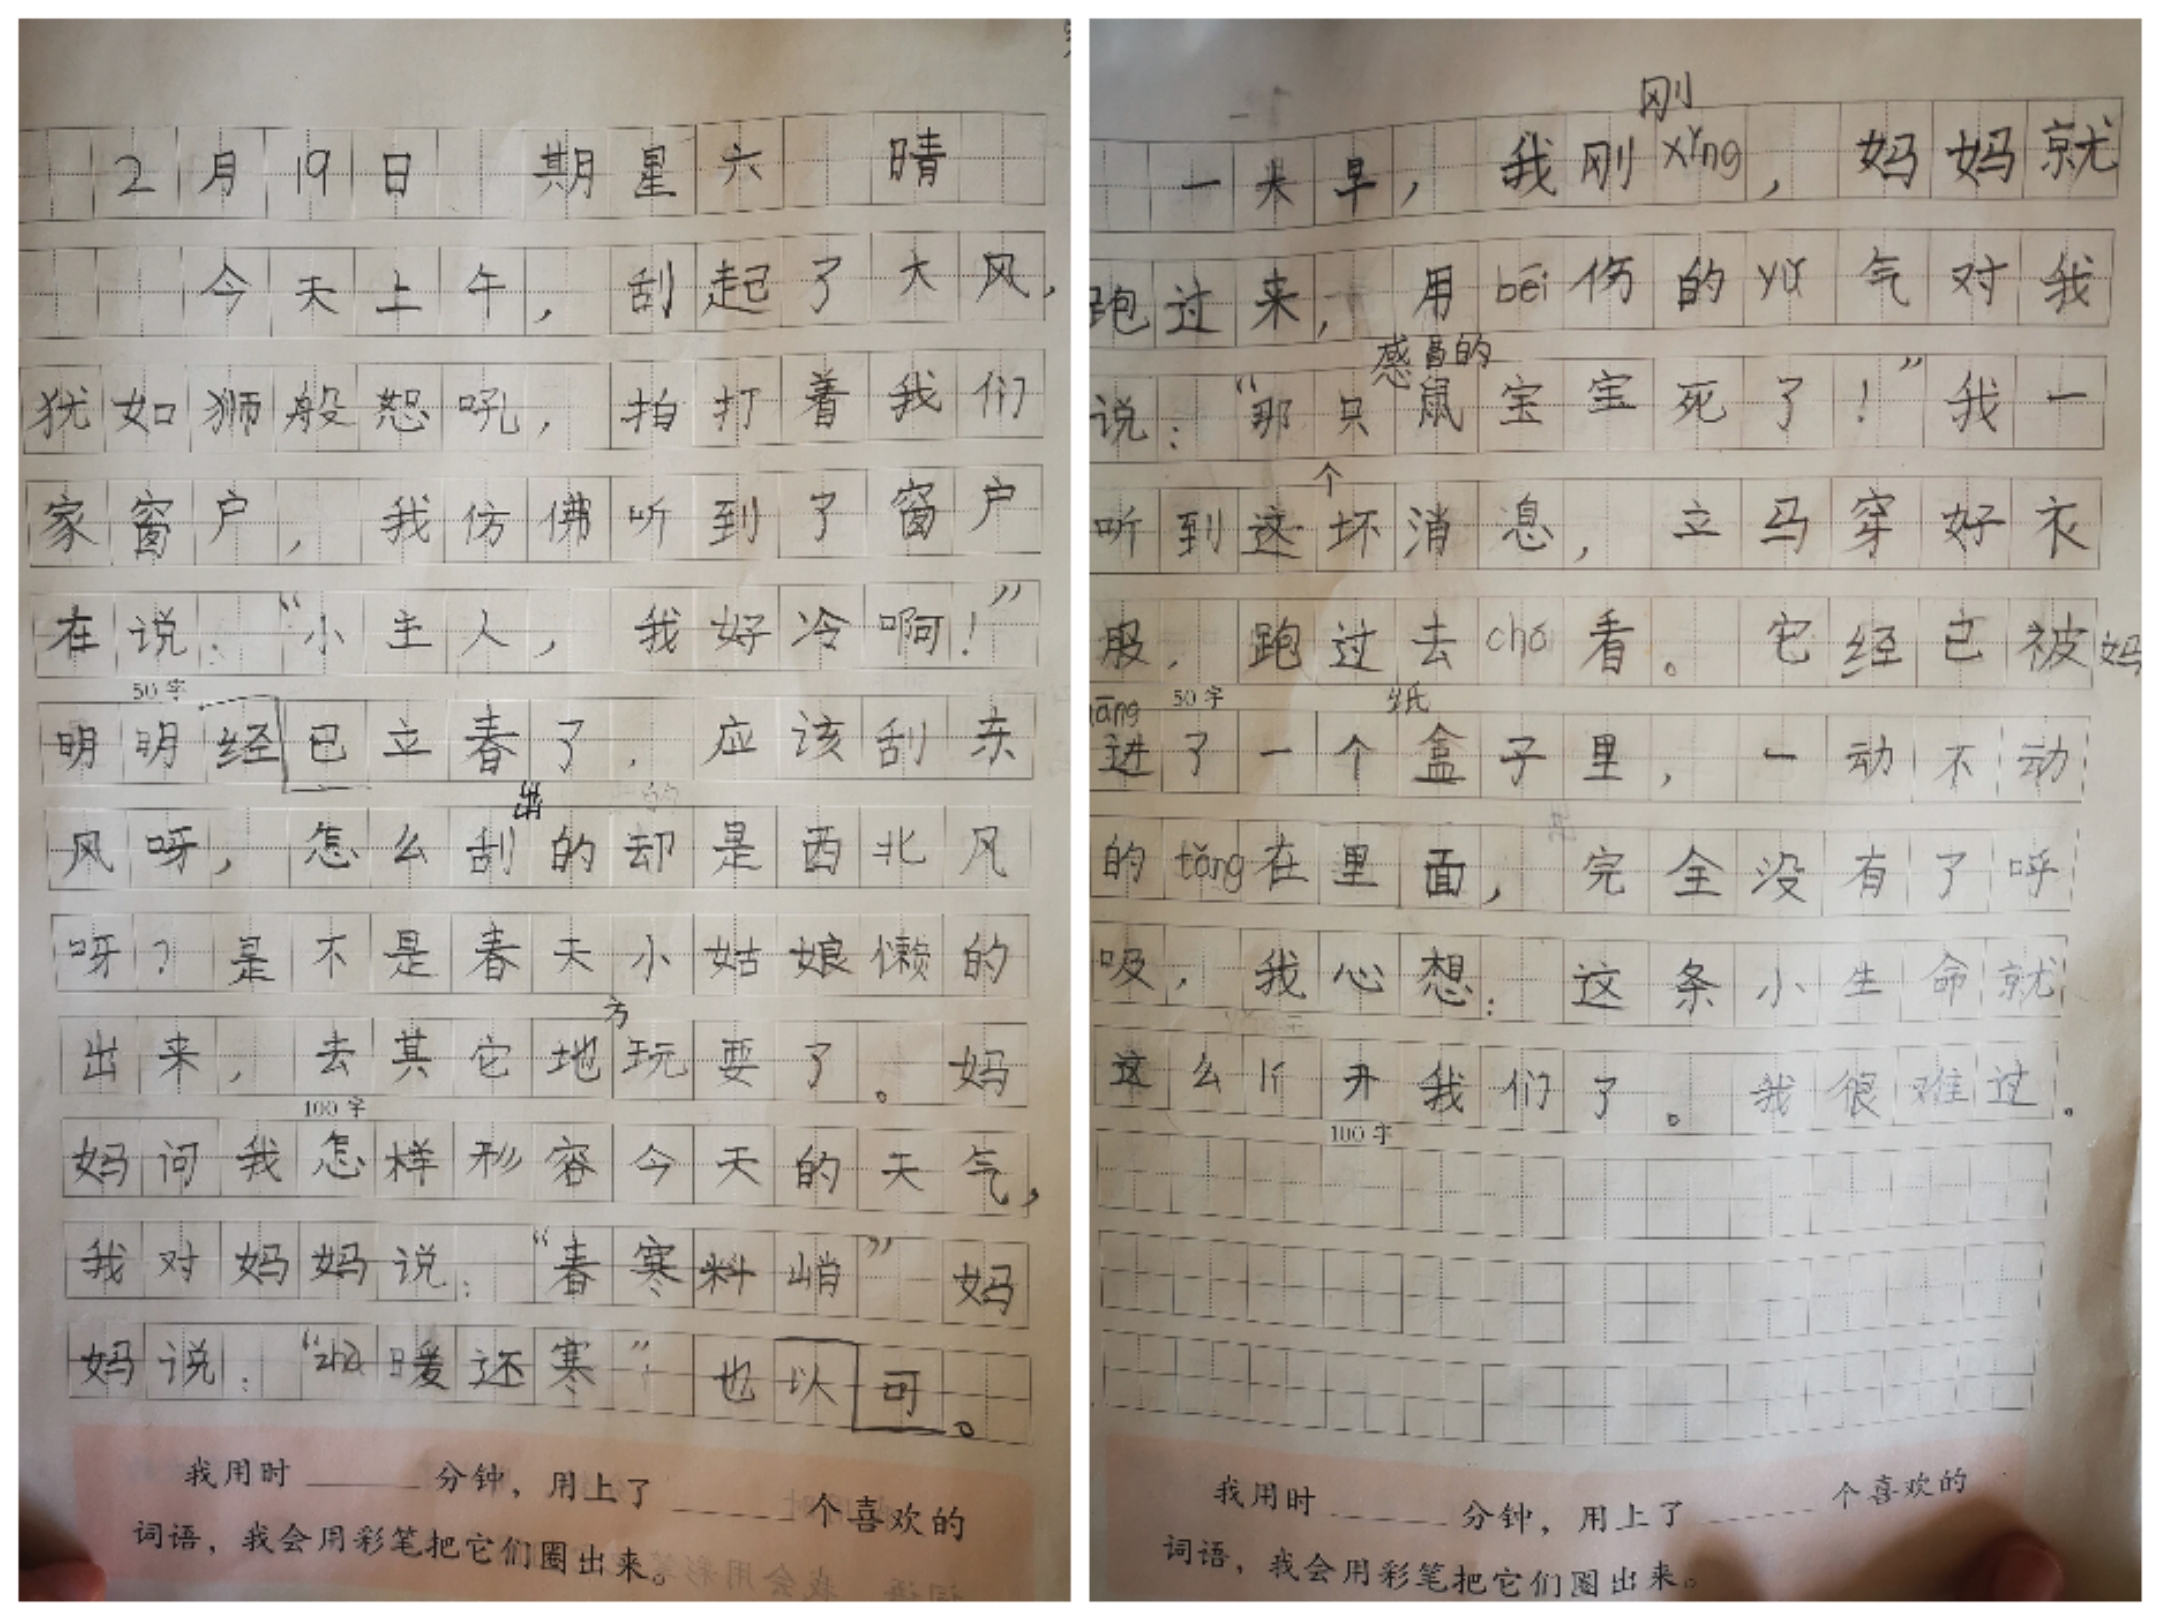 2月19日 期星六 晴
今天上午，刮起了大风，
犹如狮般恕吼，拍打着我们
家窗户，我仿佛听到了窗户
在说：“小主人，我好冷啊！”
50字
明明经已立春了，应该刮东
出
风呀，怎么刮的却是西北风
呀？是不是春天小姑娘懒的
方
出来，去其它地玩耍了。妈
100字
妈问我怎样形容今天的天气，
我对妈妈说：“春寒料峭”妈
妈说：“zhà暖还寒”也以可。
我用时 分钟，用上了 个喜欢的
词语，我会用彩笔把它们圈出来。
刚
一大早，我刚xǐng，妈妈就
跑过来，用bēi伤的yǔ气对我
感冒的
说：“那只鼠宝宝死了！”我一
个
听到这坏消息，立马穿好衣
服，跑过去chá看。它经已被妈
50字 纸
进了一个盒子里，一动不动
的tǎng在里面，完全没有了呼
吸，我心想：这条小生命就
这么开我们了。我很难过。
100字
我用时 分钟，用上了 个喜欢的
词语，我会用彩笔把它们圈出来。